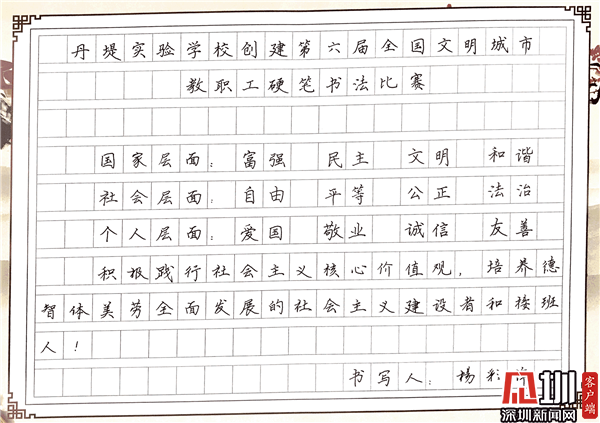 丹堤实验学校创建第六届全国文明城市
教职工硬笔书法比赛
国家层面：富强 民主 文明 和谐
社会层面：自由 平等 公正 法治
个人层面：爱国 敬业 诚信 友善
积极践行社会主义核心价值观，培养德
智体美劳全面发展的社会主义建设者和接班
人！
书写人：杨彩
深圳新闻网
客户端